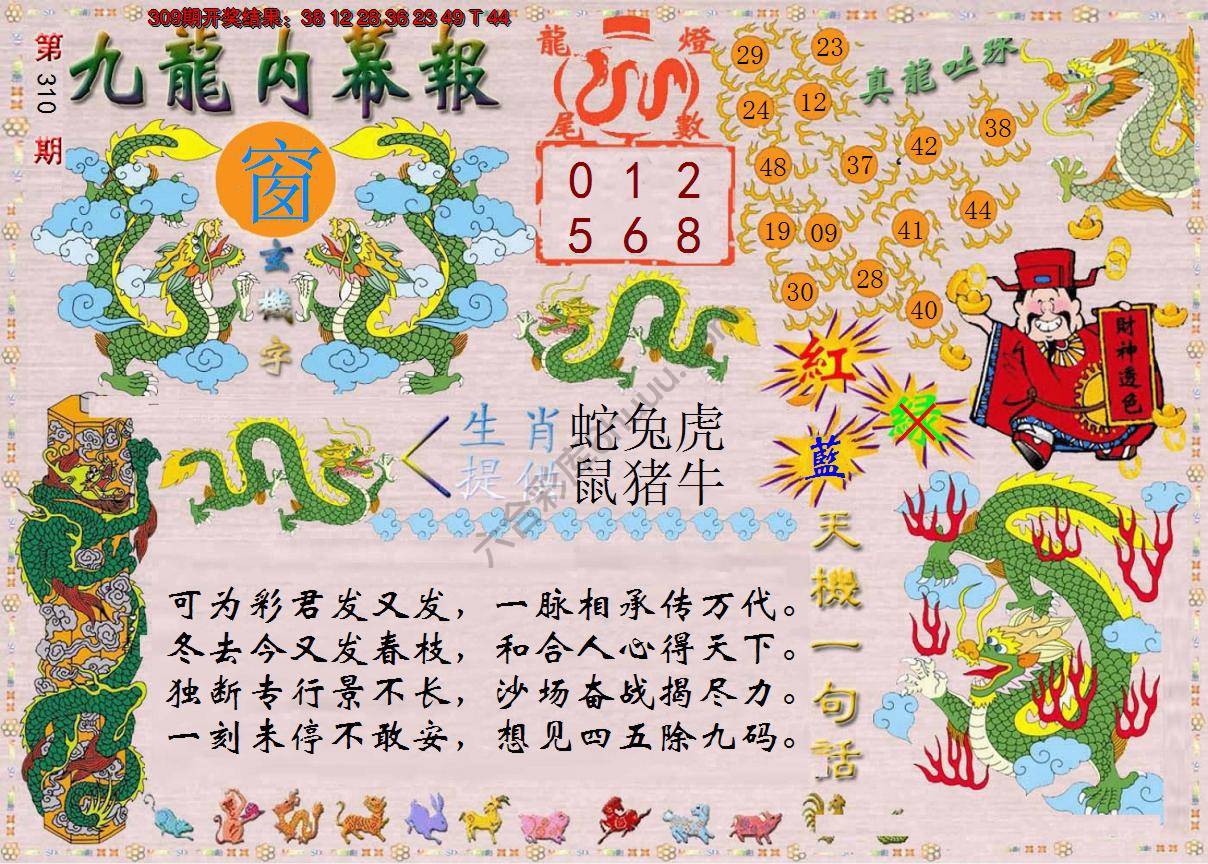 309期开奖结果：38 12 28 36 23 49 T 44
第310期
九龍内幕報
窗
玄機字
龍燈尾數
0 1 2
5 6 8
真龍吐珠
29 23
24 12
48 37 42 38
19 09 41 44
30 28 40
財神透色
紅
綠
藍
生肖 蛇兔虎
提供 鼠猪牛
天機一句话
可为彩君发又发，一脉相承传万代。
冬去今又发春枝，和合人心得天下。
独断专行景不长，沙场奋战揭尽力。
一刻未停不敢安，想见四五除九码。